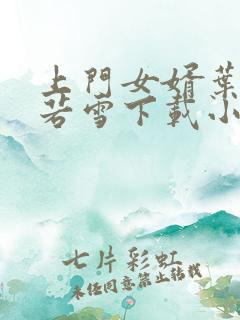 上門女婿葉
若雪下載小
七片彩虹
未经同意禁止转载